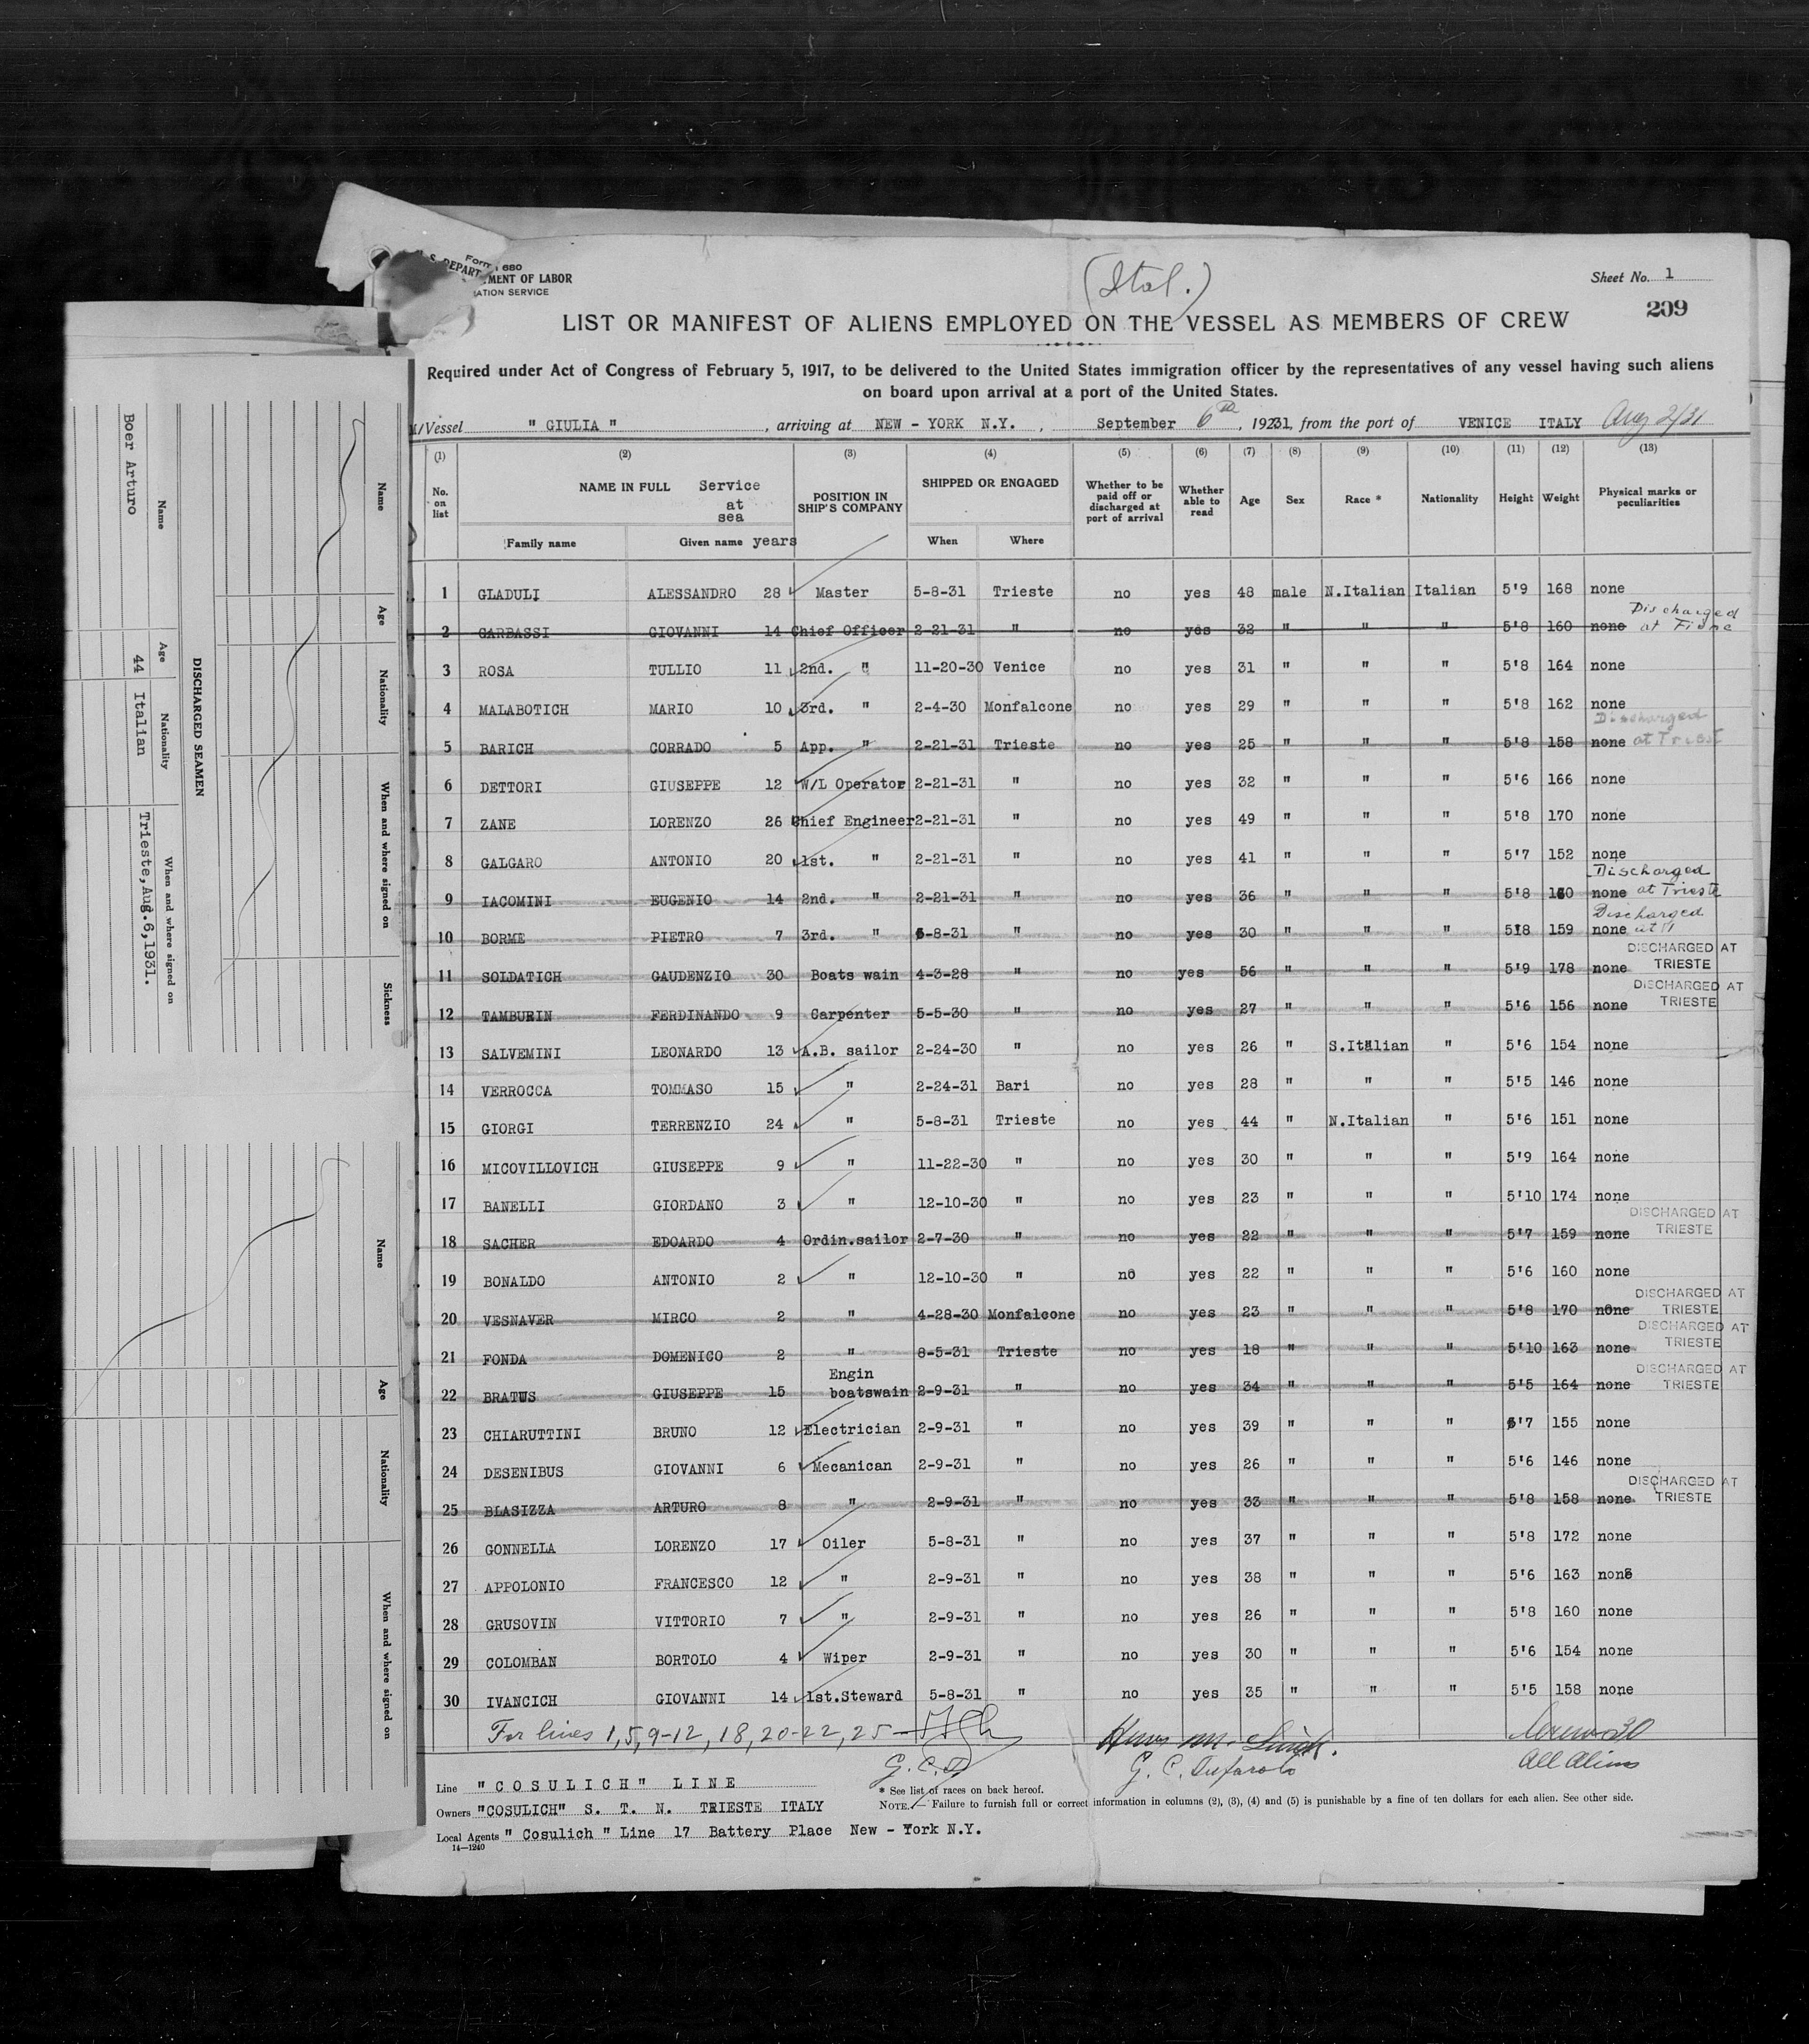 Form 680
U. S. DEPARTMENT OF LABOR
RATION SERVICE
(Ital.)
Sheet No. 1
209
LIST OR MANIFEST OF ALIENS EMPLOYED ON THE VESSEL AS MEMBERS OF CREW
Required under Act of Congress of February 5, 1917, to be delivered to the United States immigration officer by the representatives of any vessel having such aliens
on board upon arrival at a port of the United States.
M/Vessel " GIULIA " , arriving at NEW - YORK N.Y. , September 6th , 1931, from the port of VENICE ITALY Aug 2/31
(1) (2) (3) (4) (5) (6) (7) (8) (9) (10) (11) (12) (13)
No. on list NAME IN FULL Service at sea years POSITION IN SHIP'S COMPANY SHIPPED OR ENGAGED Whether to be paid off or discharged at port of arrival Whether able to read Age Sex Race * Nationality Height Weight Physical marks or peculiarities
Family name Given name When Where
1 GLADULI ALESSANDRO 28 Master 5-8-31 Trieste no yes 48 male N.Italian Italian 5'9 168 none
2 GARBASSI GIOVANNI 14 Chief Officer 2-21-31 " no yes 32 " " " 5'8 160 none Discharged at Fiume
3 ROSA TULLIO 11 2nd. " 11-20-30 Venice no yes 31 " " " 5'8 164 none
4 MALABOTICH MARIO 10 3rd. " 2-4-30 Monfalcone no yes 29 " " " 5'8 162 none
5 BARICH CORRADO 5 App. " 2-21-31 Trieste no yes 25 " " " 5'8 158 none Discharged at Triest
6 DETTORI GIUSEPPE 12 W/L Operator 2-21-31 " no yes 32 " " " 5'6 166 none
7 ZANE LORENZO 26 Chief Engineer 2-21-31 " no yes 49 " " " 5'8 170 none
8 GALGARO ANTONIO 20 1st. " 2-21-31 " no yes 41 " " " 5'7 152 none
9 IACOMINI EUGENIO 14 2nd. " 2-21-31 " no yes 36 " " " 5'8 160 none Discharged at Trieste
10 BORME PIETRO 7 3rd. " 5-8-31 " no yes 30 " " " 5'8 159 none Discharged at "
11 SOLDATICH GAUDENZIO 30 Boats wain 4-3-28 " no yes 56 " " " 5'9 178 none DISCHARGED AT TRIESTE
12 TAMBURIN FERDINANDO 9 Carpenter 5-5-30 " no yes 27 " " " 5'6 156 none DISCHARGED AT TRIESTE
13 SALVEMINI LEONARDO 13 A.B. sailor 2-24-30 " no yes 26 " S.Italian " 5'6 154 none
14 VERROCCA TOMMASO 15 " 2-24-31 Bari no yes 28 " " " 5'5 146 none
15 GIORGI TERRENZIO 24 " 5-8-31 Trieste no yes 44 " N.Italian " 5'6 151 none
16 MICOVILLOVICH GIUSEPPE 9 " 11-22-30 " no yes 30 " " " 5'9 164 none
17 BANELLI GIORDANO 3 " 12-10-30 " no yes 23 " " " 5'10 174 none
18 SACHER EDOARDO 4 Ordin.sailor 2-7-30 " no yes 22 " " " 5'7 159 none DISCHARGED AT TRIESTE
19 BONALDO ANTONIO 2 " 12-10-30 " no yes 22 " " " 5'6 160 none
20 VESNAVER MIRCO 2 " 4-28-30 Monfalcone no yes 23 " " " 5'8 170 none DISCHARGED AT TRIESTE
21 FONDA DOMENICO 2 " 8-5-31 Trieste no yes 18 " " " 5'10 163 none DISCHARGED AT TRIESTE
22 BRATUS GIUSEPPE 15 Engin boatswain 2-9-31 " no yes 34 " " " 5'5 164 none DISCHARGED AT TRIESTE
23 CHIARUTTINI BRUNO 12 Electrician 2-9-31 " no yes 39 " " " 5'7 155 none
24 DESENIBUS GIOVANNI 6 Mecanican 2-9-31 " no yes 26 " " " 5'6 146 none
25 BLASIZZA ARTURO 8 " 2-9-31 " no yes 33 " " " 5'8 158 none DISCHARGED AT TRIESTE
26 GONNELLA LORENZO 17 Oiler 5-8-31 " no yes 37 " " " 5'8 172 none
27 APPOLONIO FRANCESCO 12 " 2-9-31 " no yes 38 " " " 5'6 163 none
28 GRUSOVIN VITTORIO 7 " 2-9-31 " no yes 26 " " " 5'8 160 none
29 COLOMBAN BORTOLO 4 Wiper 2-9-31 " no yes 30 " " " 5'6 154 none
30 IVANCICH GIOVANNI 14 1st.Steward 5-8-31 " no yes 35 " " " 5'5 158 none
For lines 1, 5, 9-12, 18, 20-22, 25
G. C. D
30
All Aliens
Line "COSULICH" LINE
Owners "COSULICH" S. T. N. TRIESTE ITALY
Local Agents " Cosulich " Line 17 Battery Place New - York N.Y.
14-1240
* See list of races on back hereof.
NOTE.— Failure to furnish full or correct information in columns (2), (3), (4) and (5) is punishable by a fine of ten dollars for each alien. See other side.
DISCHARGED SEAMEN
Name Age Nationality When and where signed on
Boer Arturo 44 Italian Trieste, Aug. 6, 1931.
Name Age Nationality When and where signed on Sickness
Name Age Nationality When and where signed on